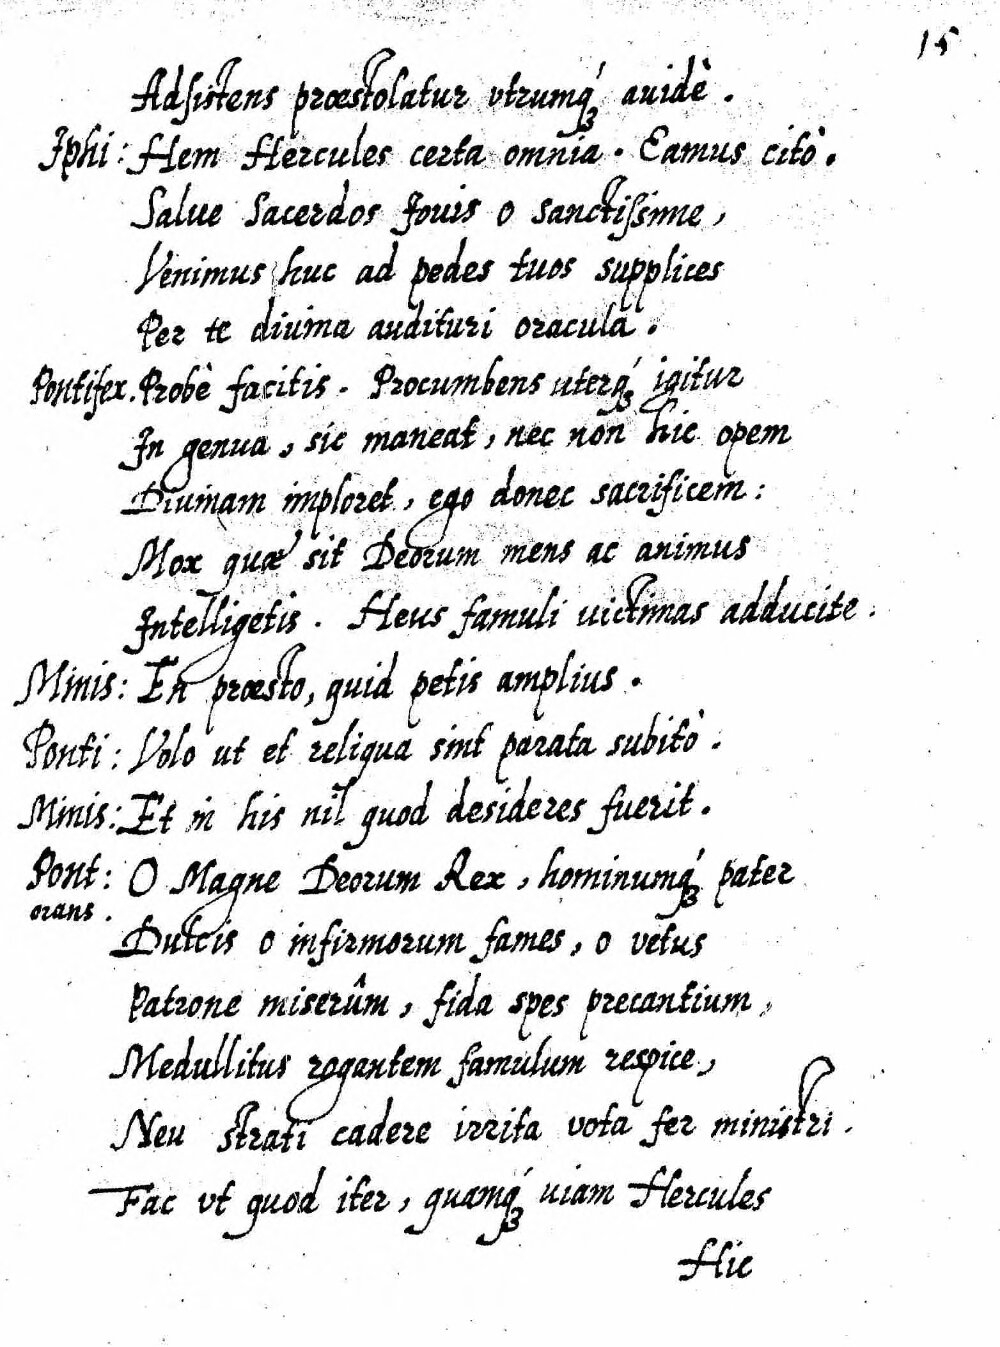 15
Adsistens præstolatur vtrumq́ue auidè.
Iphi: Hem Hercules certa omnia. Eamus citò.
Salue Sacerdos Iouis o sanctissime,
Venimus huc ad pedes tuos supplices
Per te diuina audituri oracula.
Pontifex. Probè facitis. Procumbens uterq́ꝫ igitur
In genua, sic maneat, nec non hic opem
Diuinam imploret, ego donec sacrificem:
Mox quæ sit Deorum mens ac animus
Intelligetis. Heus famuli uictimas adducite.
Minis: En præsto, quid petis amplius.
Ponti: Volo ut et reliqua sint parata subitò.
Minis: Et in his nil quod desideres fuerit.
Pont: O Magne Deorum Rex, hominumq́ꝫ pater
orans.
Dulcis o infirmorum fames, o vetus
Patrone miserûm, fida spes precantium,
Medullitus rogantem famulum respice,
Neu strati cadere irrita vota fer ministri.
Fac vt quod iter, quamq́ꝫ uiam Hercules
Hic